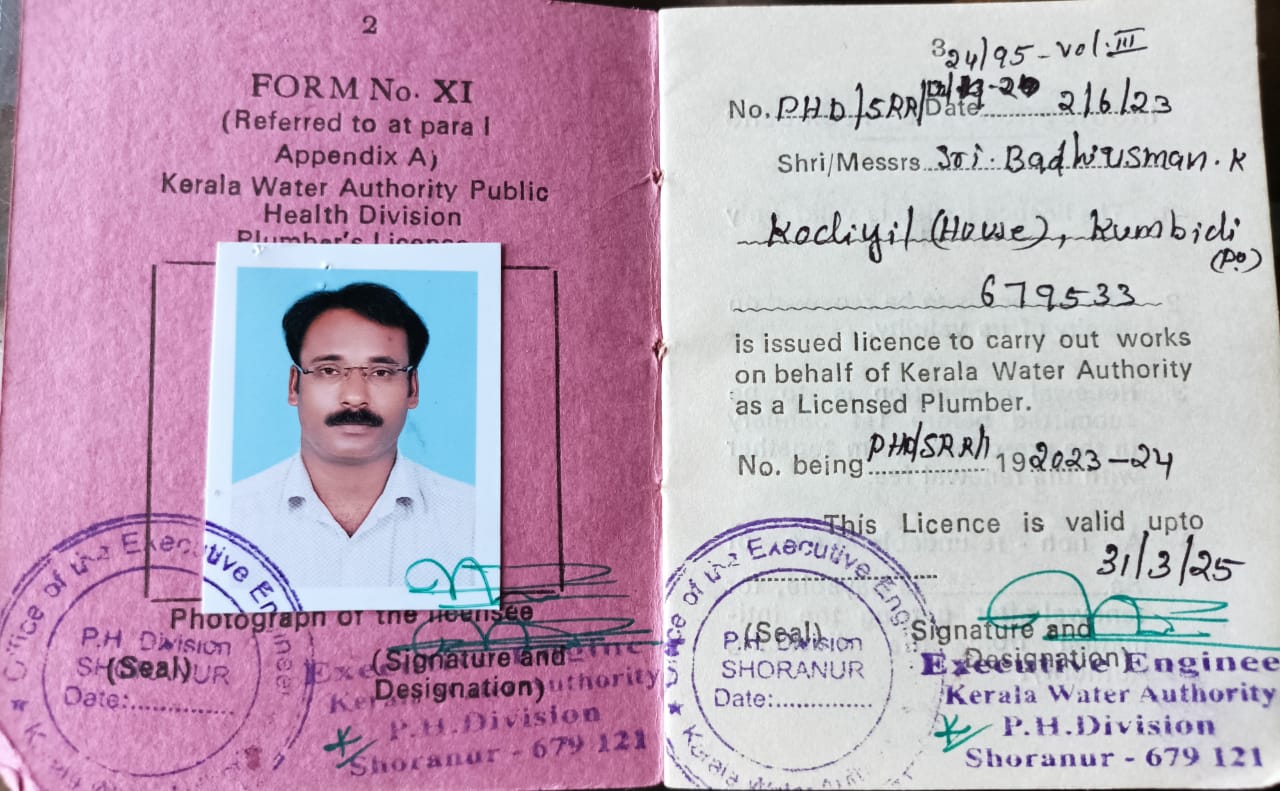 2
FORM No. XI
(Referred to at para I
Appendix A)
Kerala Water Authority Public
Health Division
Plumber's Licence
Photograph of the licensee
(Seal)
(Signature and
Designation)
Office of the Executive Engineer
P.H. Division
SHORANUR
Date:..............
Executive Engineer
Kerala Water Authority
P.H.Division
Shoranur - 679 121
3
24/95 - Vol. III
No. PHD/SRR/ Date 2/6/23
Shri/Messrs Sri. Badhiusman. K
Kodiyil (House), Kumbidi
(P.O)
679533
is issued licence to carry out works
on behalf of Kerala Water Authority
as a Licensed Plumber.
No. being PHD/SRR/1 19 2023-24
This Licence is valid upto
31/3/25
(Seal)
Signature and
Designation)
Office of the Executive Engineer
P.H. Division
SHORANUR
Date:..............
Kerala Water
Executive Enginee
Kerala Water Authority
P.H.Division
Shoranur - 679 121